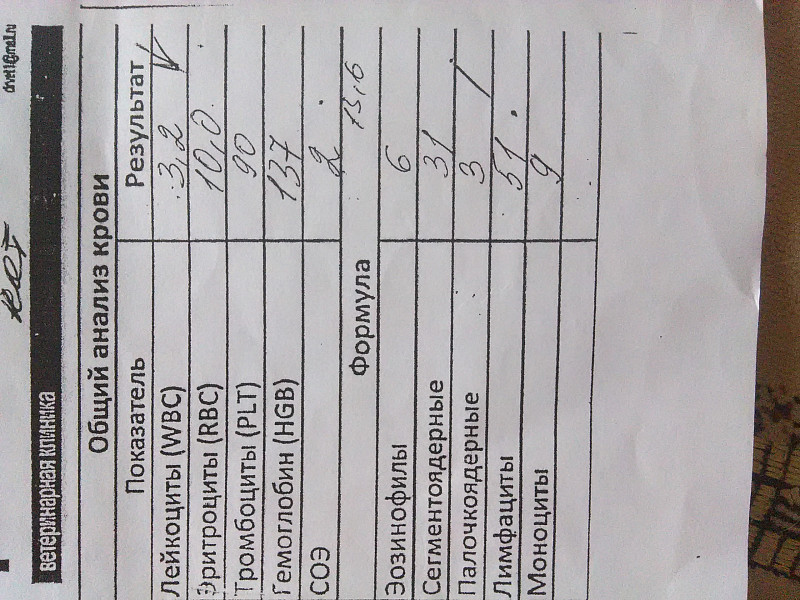 кот
drvet1@mail.ru
ветеринарная клиника
Общий анализ крови
Показатель Результат
Лейкоциты (WBC) 3,2 ↓
Эритроциты (RBC) 10,0
Тромбоциты (PLT) 90
Гемоглобин (HGB) 137
СОЭ 2
Формула
Эозинофилы 6
Сегментоядерные 31
Палочкоядерные 3
Лимфациты 51
Моноциты 9